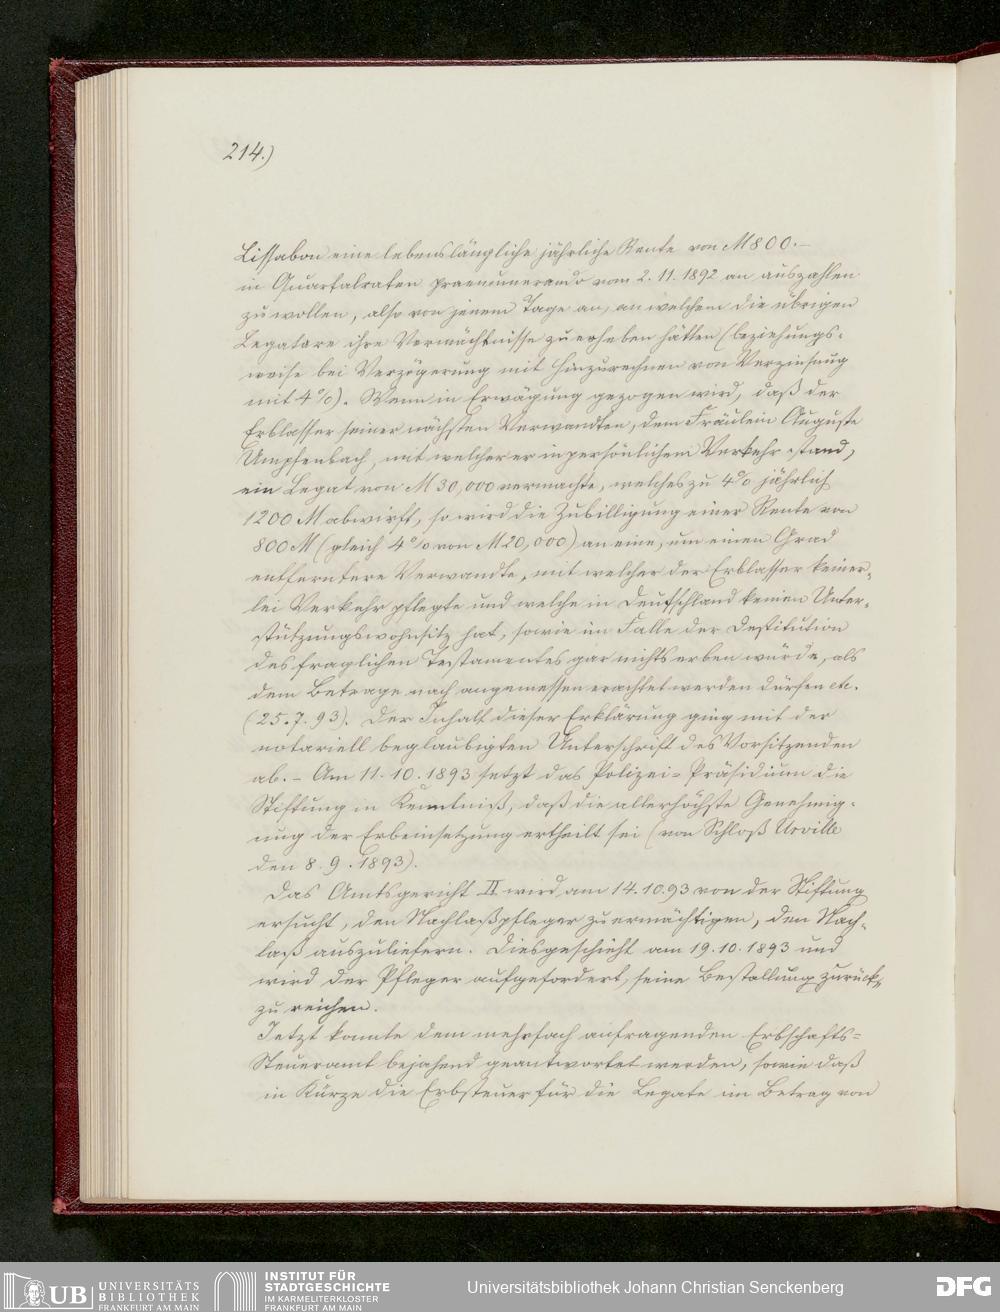 214.)
Lissabon eine lebenslängliche jährliche Rente von M 800.–
in Quartalraten praenumerando vom 2. 11. 1892 an auszahlen
zu wollen, also von jenem Tage an, an welchem die übrigen
Legatare ihre Vermächtnisse zu erheben hätten (beziehungs-
weise bei Verzögerung mit Hinzurechnen von Verzinsung
mit 4%). Wenn in Erwägung gezogen wird, daß der
Erblasser seiner nächsten Verwandten, dem Fräulein Auguste
Umpfenbach, mit welcher er in persönlichem Verkehr stand,
ein Legat von M 30,000 vermachte, welches zu 4% jährlich
1200 M abwirft, so wird die Zubilligung einer Rente von
800 M (gleich 4% von M 20,000) an eine, um einen Grad
entferntere Verwandte, mit welcher der Erblasser keiner-
lei Verkehr pflegte und welche in Deutschland keinen Unter-
stützungswohnsitz hat, sowie im Falle der Destitution
des fraglichen Testamentes gar nichts erben würde, als
dem Betrage nach angemessen erachtet werden dürfen etc.
(25. 7. 93). Der Inhalt dieser Erklärung ging mit der
notariell beglaubigten Unterschrift des Vorsitzenden
ab. – Am 11. 10. 1893 setzt das Polizei=Präsidium die
Stiftung in Kenntniß, daß die allerhöchste Genehmig-
ung der Erbeinsetzung ertheilt sei (von Schloß Urville
den 8. 9. 1893).
Das Amtsgericht II wird am 14. 10. 93 von der Stiftung
ersucht, den Nachlaßpfleger zu ermächtigen, den Nach-
laß auszuliefern. Dies geschieht am 19. 10. 1893 und
wird der Pfleger aufgefordert, seine Bestallung zurück-
zu reichen.
Jetzt konnte dem mehrfach anfragenden Erbschafts=
Steueramt bejahend geantwortet werden, sowie daß
in Kürze die Erbsteuer für die Legate im Betrag von
UB UNIVERSITÄTS
BIBLIOTHEK
FRANKFURT AM MAIN
INSTITUT FÜR
STADTGESCHICHTE
IM KARMELITERKLOSTER
FRANKFURT AM MAIN
Universitätsbibliothek Johann Christian Senckenberg
DFG